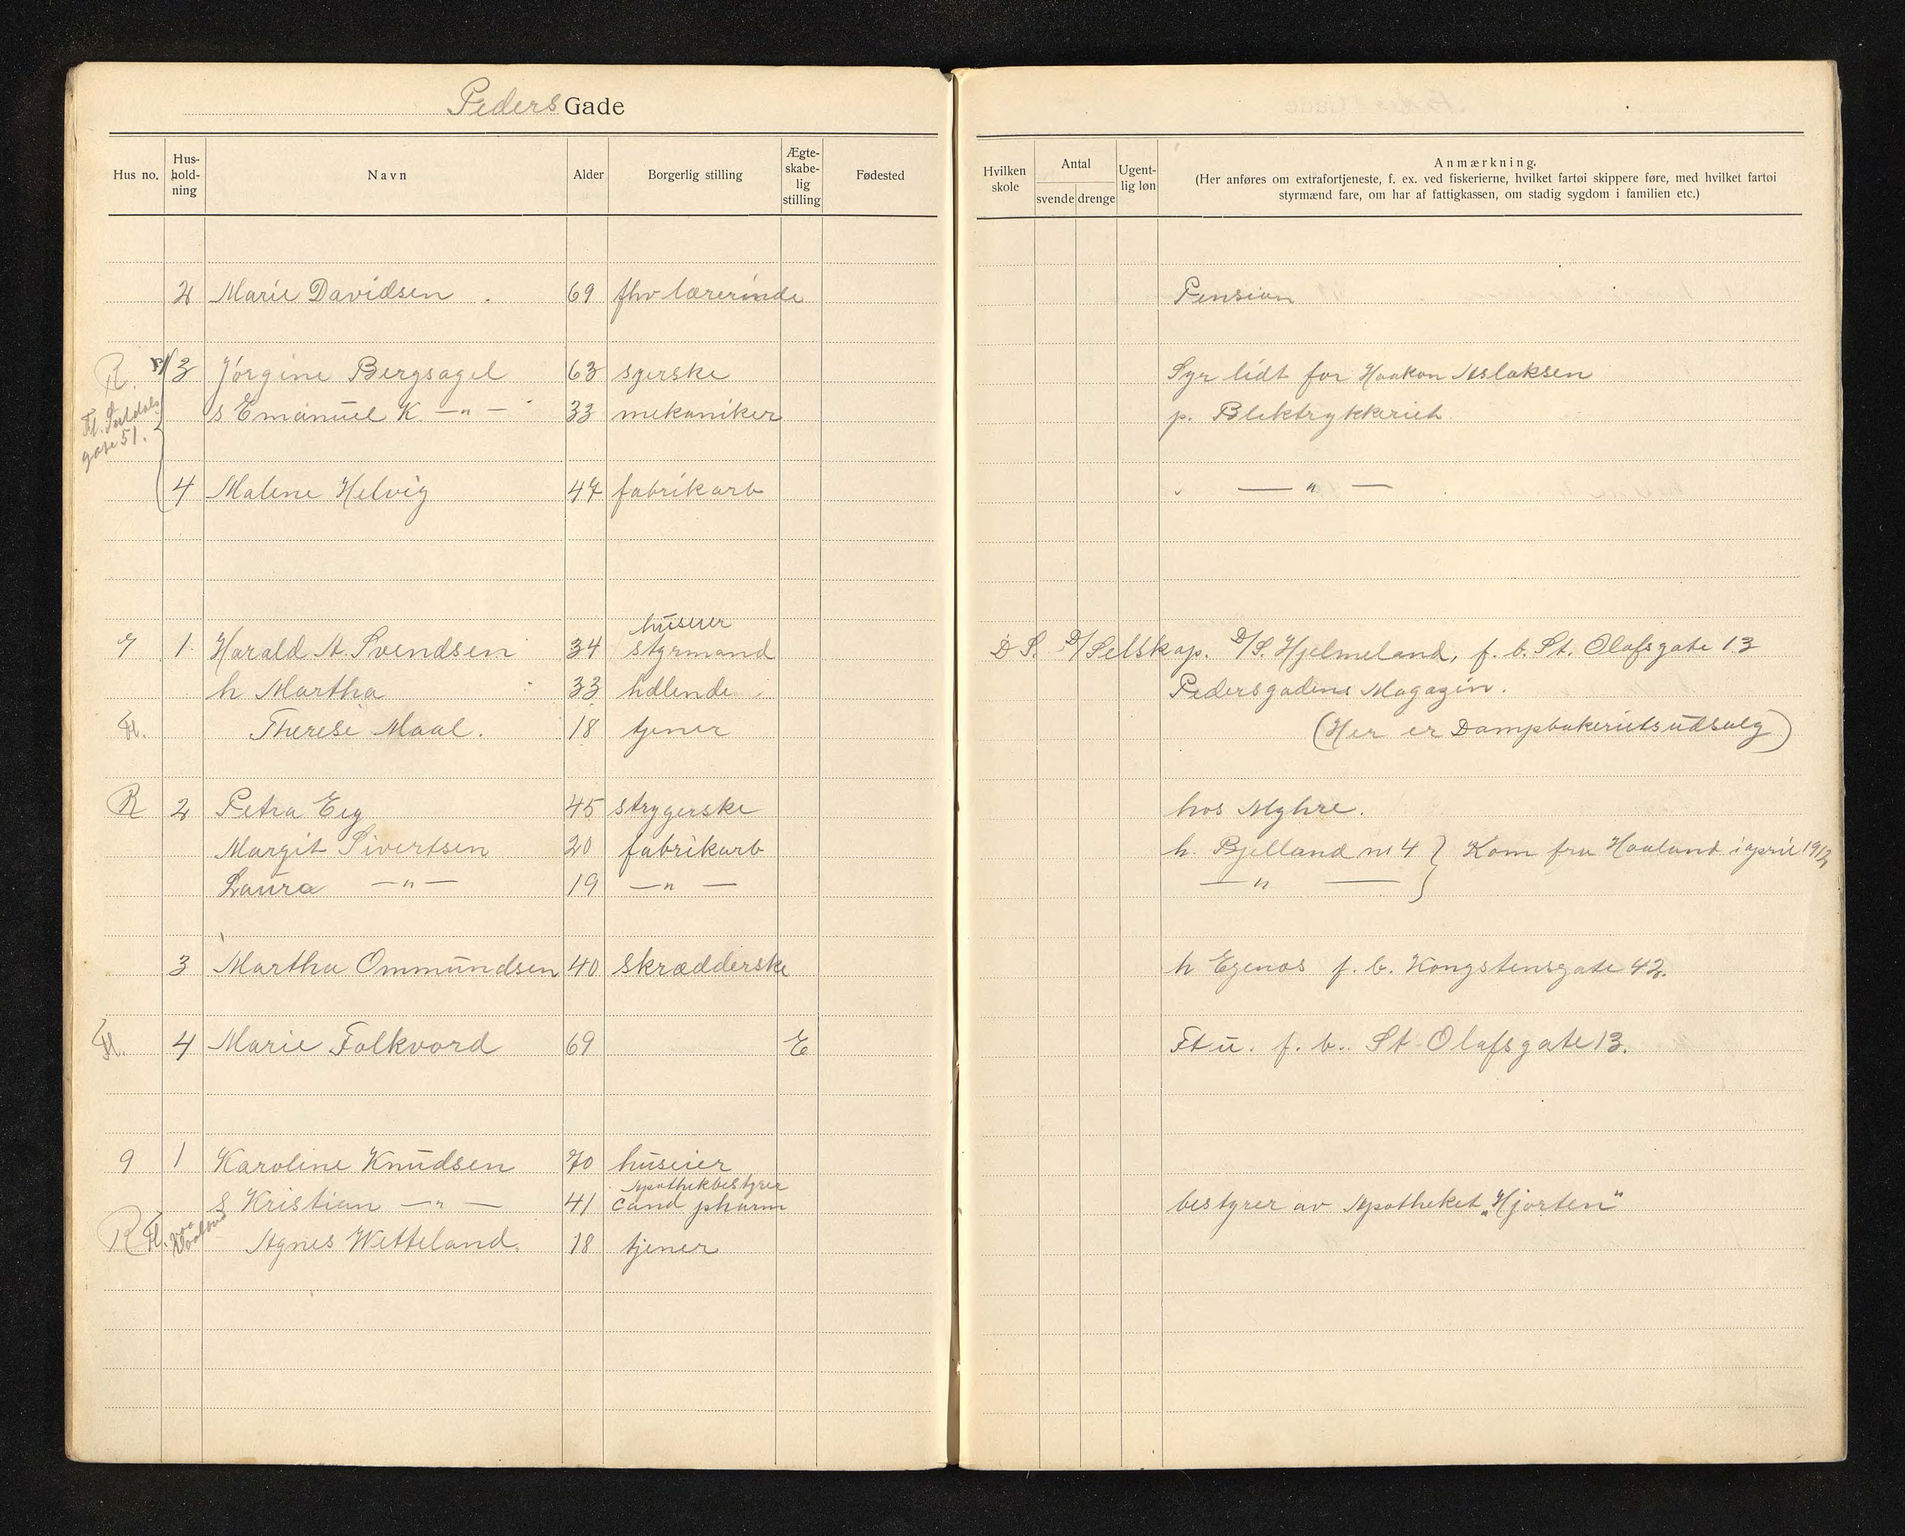 Peders Gade
Hus no. Hus-hold-ning Navn Alder Borgerlig stilling Ægte-skabe-lig stilling Fødested Hvilken skole Antal svende drenge Ugent-lig løn Anmærkning.
(Her anføres om extrafortjeneste, f. ex. ved fiskerierne, hvilket fartøi skippere føre, med hvilket fartøi
styrmænd fare, om har af fattigkassen, om stadig sygdom i familien etc.)
2 Marie Davidsen 69 fhv lærerinde Pension
R. 3 Jørgine Bergsagel 63 syerske Syr lidt for Haakon Aslaksen
s Emanuel K. —"— 33 mekaniker p. Bliktrykkeriet
Fl.
gate 51.
4 Malene Helvig 47 fabrikarb —"—
huseier
7 1. Harald A. Svendsen 34 styrmand D S. D/Selskap. D/S. Hjelmeland, f. b. St. Olafsgate 13
h Martha 33 hdlende Pedersgadens Magazin.
Fl. Therese Maal. 18 tjener (Her er Dampbakeriets udsalg)
R 2 Petra Eeg 45 strygerske hos Myhre.
Margit Sivertsen 20 fabrikarb h. Bjelland no 4 } Kom fra Haaland i april 1912
Laura —"— 19 —"— —"—
3 Martha Ommundsen 40 skrædderske h Egenæs f. b. Kongstensgate 42.
Fl. 4 Marie Folkvord 69 E Ft u. f. b. St Olafsgate 13.
9 1 Karoline Knudsen 70 huseier
Apothekbestyrer
s Kristian —"— 41 cand pharm bestyrer av Apotheket "Hjorten"
R Fl. Haaland Agnes Wetteland. 18 tjener